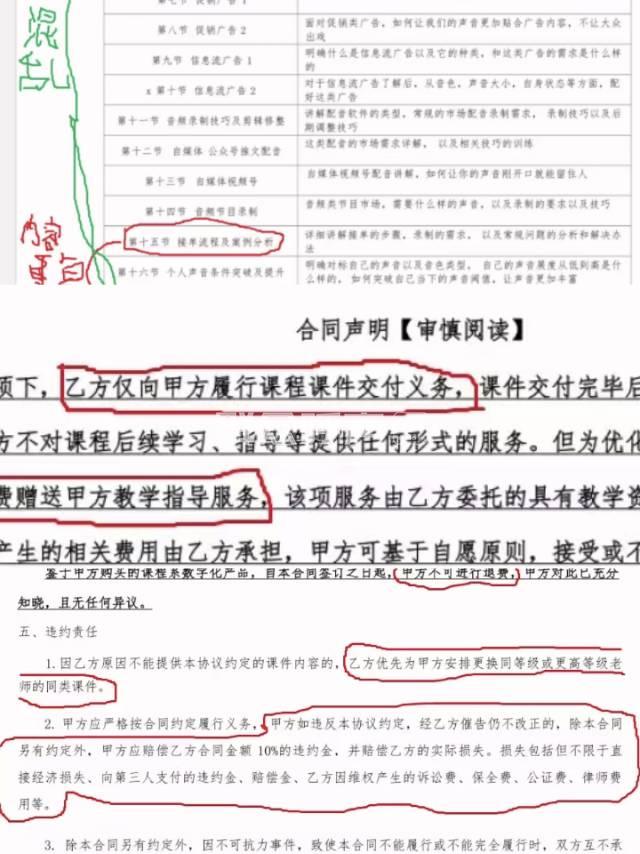 混乱
第七节 促销广告1
第八节 促销广告2
面对促销类广告，如何让我们的声音更加贴合广告内容，不让大众
出戏
第九节 信息流广告1
明确什么是信息流广告以及它的种类，和这类广告的需求是什么样
的
x 第十节 信息流广告2
对于信息流广告了解后，从音色，声音大小，自身状态等方面，配
好这类广告
第十一节 音频录制技巧及剪辑修整
讲解配音软件的类型，常规的市场配音录制需求， 录制技巧以及后
期调整技巧
第十二节 自媒体 公众号推文配音
这类配音的市场需求详解， 以及相关技巧的训练
第十三节 自媒体视频号
自媒体视频号配音讲解，如何让你的声音刚开口就能留住人
第十四节 音频节目录制
音频类节目市场，需要什么样的声音，以及录制的要求以及技巧
内容
第十五节 接单流程及案例分析
详细讲解接单的步骤，录制的需求， 以及常规问题的分析和解决办
法
第十六节 个人声音条件突破及提升
明确对标自己的声音以及音色类型， 自己的声音展度从低到高是什
么样的， 如何突破自己当下的声音阈值，让声音更加丰富
合同声明【审慎阅读】
项下，乙方仅向甲方履行课程课件交付义务，课件交付完毕后
方不对课程后续学习、指导等提供任何形式的服务。但为优化
费赠送甲方教学指导服务，该项服务由乙方委托的具有教学资
产生的相关费用由乙方承担，甲方可基于自愿原则，接受或不
鉴于甲方购买的课程系数字化产品，自本合同签订之日起，甲方不可进行退费，甲方对此已充分
知晓，且无任何异议。
五、违约责任
1.因乙方原因不能提供本协议约定的课件内容的，乙方优先为甲方安排更换同等级或更高等级老
师的同类课件。
2. 甲方应严格按合同约定履行义务，甲方如违反本协议约定，经乙方催告仍不改正的，除本合同
另有约定外，甲方应赔偿乙方合同金额 10%的违约金，并赔偿乙方的实际损失。损失包括但不限于直
接经济损失、向第三人支付的违约金、赔偿金、乙方因维权产生的诉讼费、保全费、公证费、律师费
用等。
3. 除本合同另有约定外，因不可抗力事件，致使本合同不能履行或不能完全履行时，双方互不承